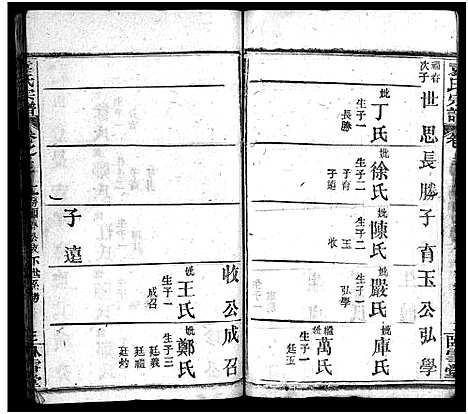 氏宗譜
福春
次子
世思
妣丁氏
生子一
長勝
長勝
妣徐氏
生子二
子育
子遠
子育
妣陳氏
生子二
玉
收
玉公
妣嚴氏
生子一
弘學
弘學
妣庫氏
妣萬氏
生子一
廷玉
子遠
收公
妣王氏
生子一
成召
成召
妣鄭氏
生子三
廷義
廷禮
氏宗譜